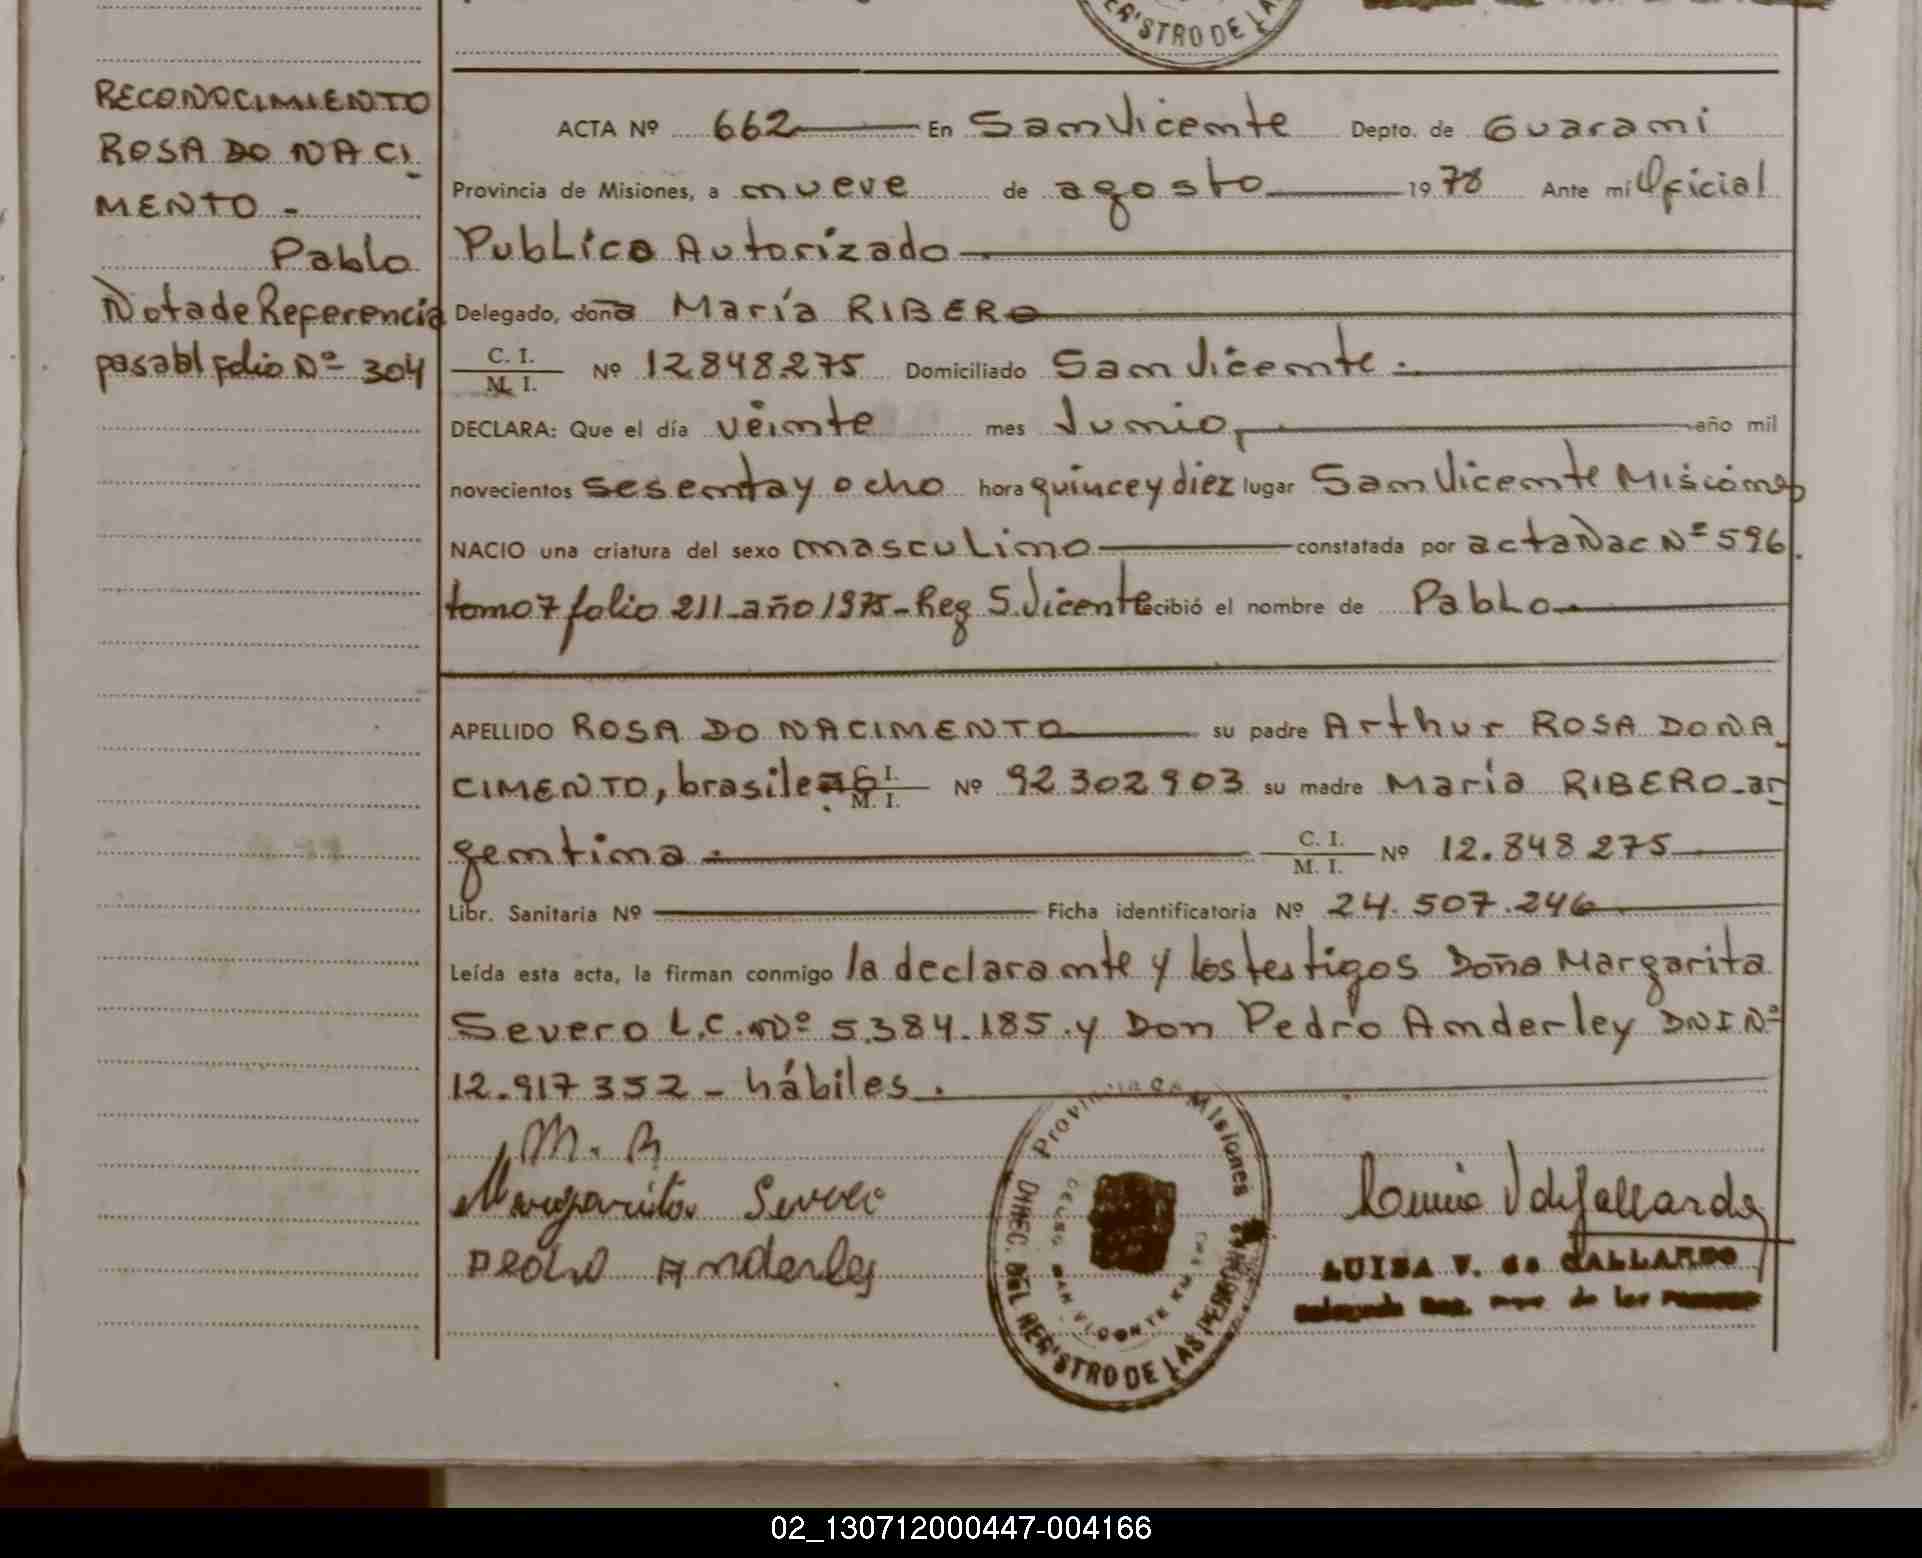 RECONOCIMIENTO
ROSA DO NACI
MENTO -
Pablo
Nota de Referencia
pasa al folio Nº 304
ACTA Nº 662 En San Vicente Depto. de Guarani
Provincia de Misiones, a nueve de agosto 1978 Ante mí Oficial
Publico Autorizado
Delegado, doña María RIBERO
C. I.
M. I. Nº 12848275 Domiciliado San Vicente.
DECLARA: Que el día veinte mes Junio, año mil
novecientos sesenta y ocho hora quince y diez lugar San Vicente Misiones
NACIO una criatura del sexo masculino constatada por acta Nac Nº 596.
tomo 7 folio 211 - año 1975 - Reg S. Vicente recibió el nombre de Pablo
APELLIDO ROSA DO NACIMENTO su padre Arthur ROSA DO NA
CIMENTO, brasileño C. I. M. I. Nº 92302903 su madre María RIBERO - ar
gentina. C. I. M. I. Nº 12.848275
Libr. Sanitaria Nº Ficha identificatoria Nº 24.507.246
Leída esta acta, la firman conmigo la declarante y los testigos Doña Margarita
Severo L.C. Nº 5.384.185 y Don Pedro Anderley DNI Nº
12.917352 - hábiles.
M. R
Margarita Severo
PEDRO Anderley
Provincia de Misiones
DIREC. DEL REGISTRO DE LAS PERSONAS
SAN VICENTE
LUISA V. de GALLARDO
REGISTRO DE LAS
02_130712000447-004166